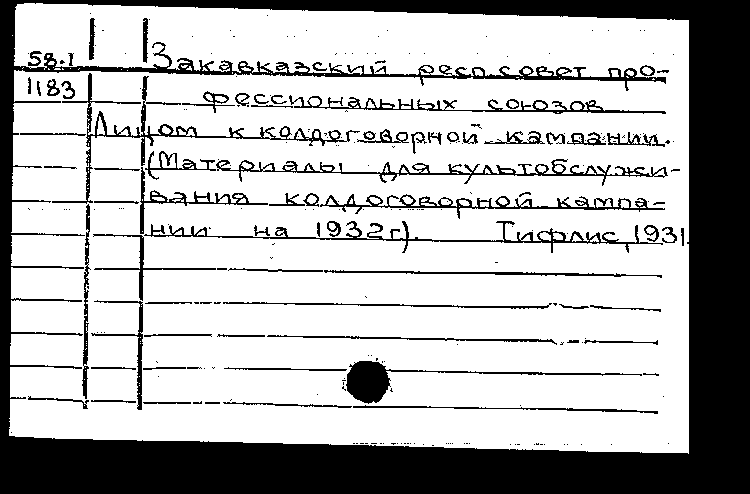 58.1 Закавказский респ.совет про-
1183 фессиональных союзов
Лицом к колдоговорной кампании.
(Материалы для культобслужи-
вания колдоговорной кампа-
нии на 1932г). Тифлис, 1931